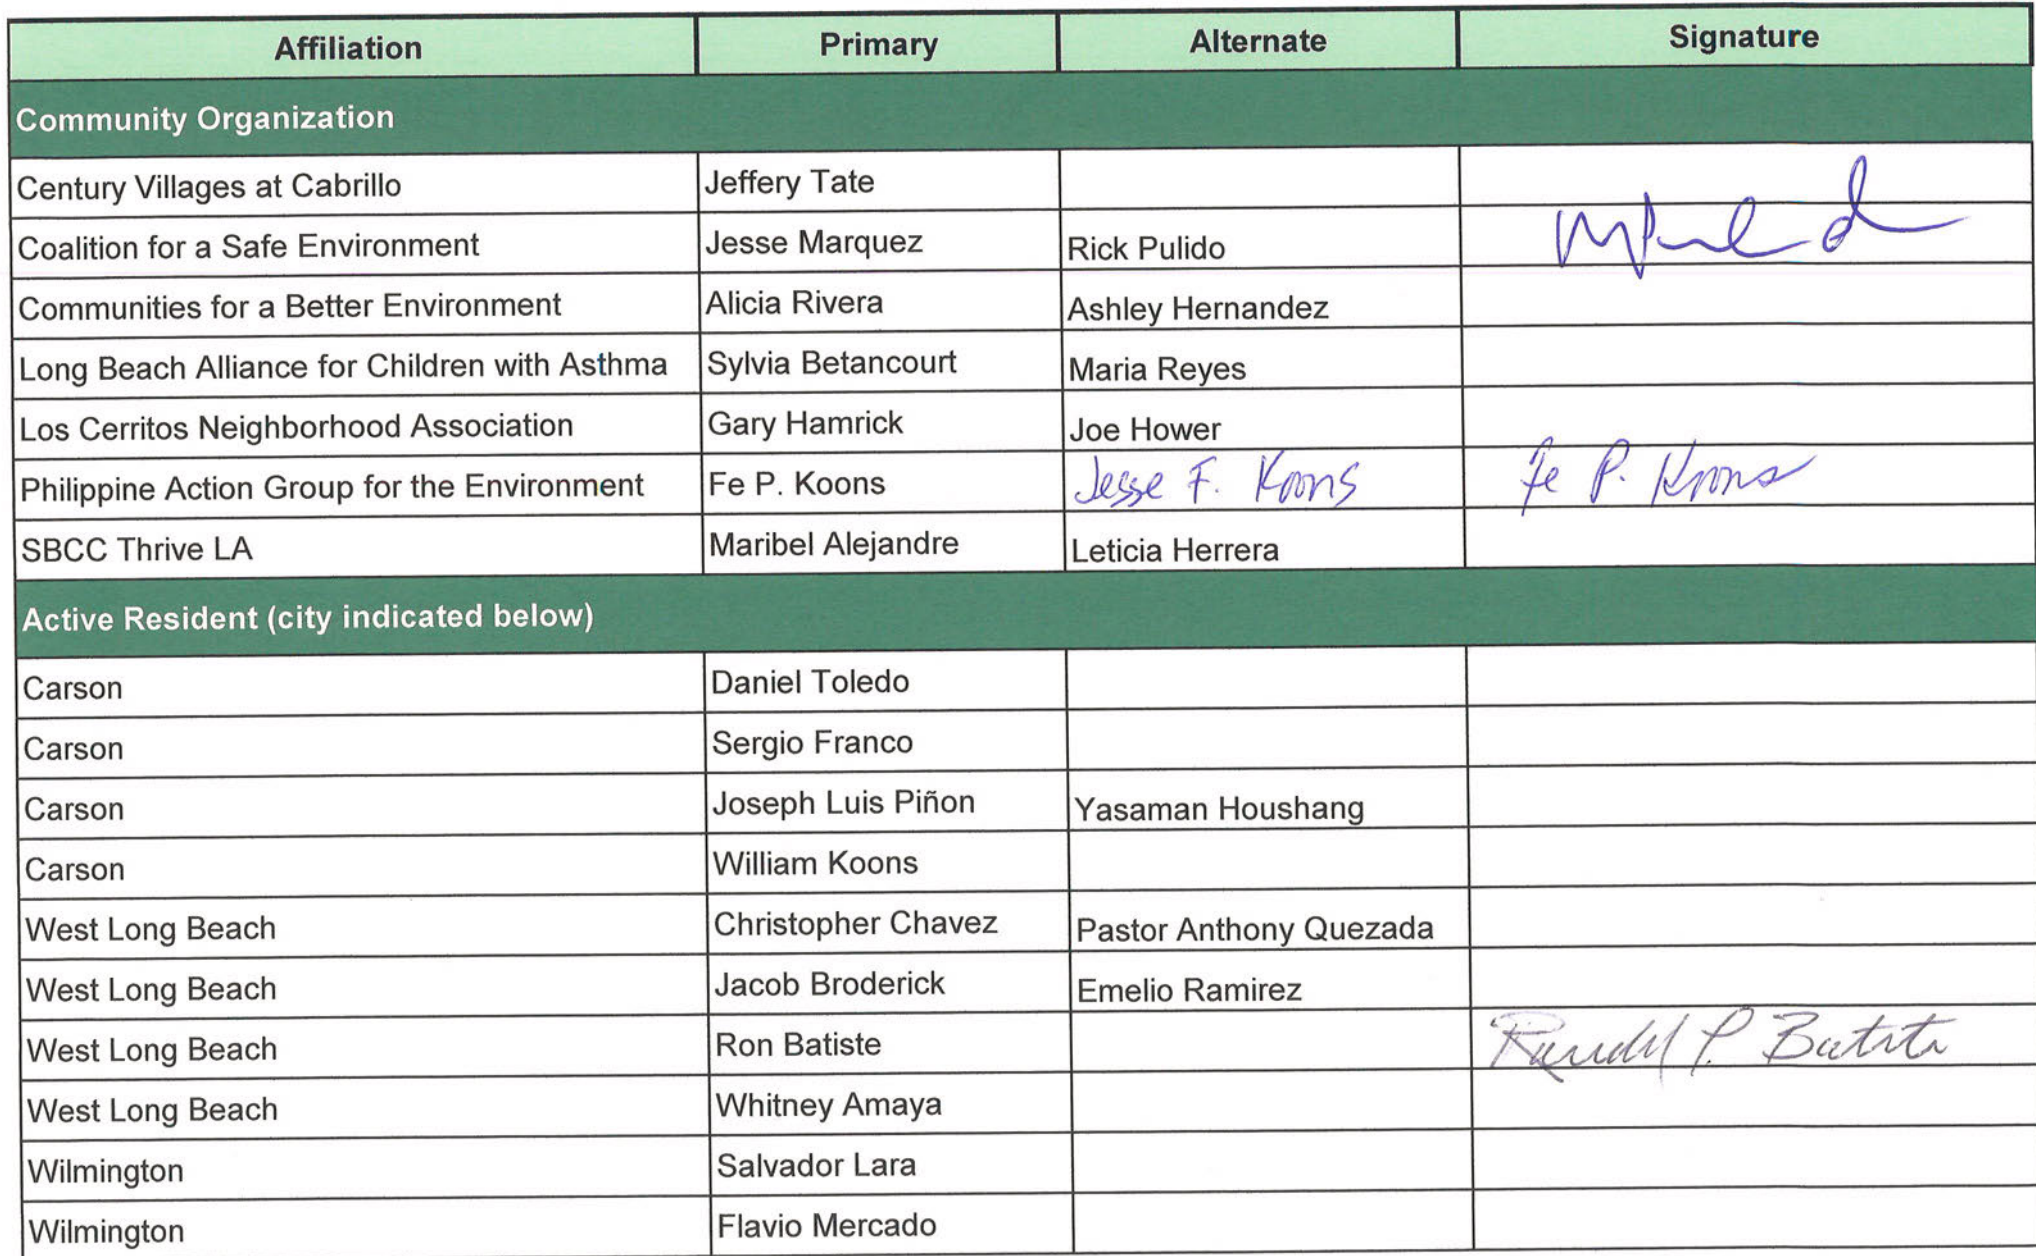 Affiliation Primary Alternate Signature
Community Organization
Century Villages at Cabrillo Jeffery Tate
Coalition for a Safe Environment Jesse Marquez Rick Pulido
Communities for a Better Environment Alicia Rivera Ashley Hernandez
Long Beach Alliance for Children with Asthma Sylvia Betancourt Maria Reyes
Los Cerritos Neighborhood Association Gary Hamrick Joe Hower
Philippine Action Group for the Environment Fe P. Koons Jesse F. Koons Fe P. Koons
SBCC Thrive LA Maribel Alejandre Leticia Herrera
Active Resident (city indicated below)
Carson Daniel Toledo
Carson Sergio Franco
Carson Joseph Luis Piñon Yasaman Houshang
Carson William Koons
West Long Beach Christopher Chavez Pastor Anthony Quezada
West Long Beach Jacob Broderick Emelio Ramirez
West Long Beach Ron Batiste P.
West Long Beach Whitney Amaya
Wilmington Salvador Lara
Wilmington Flavio Mercado